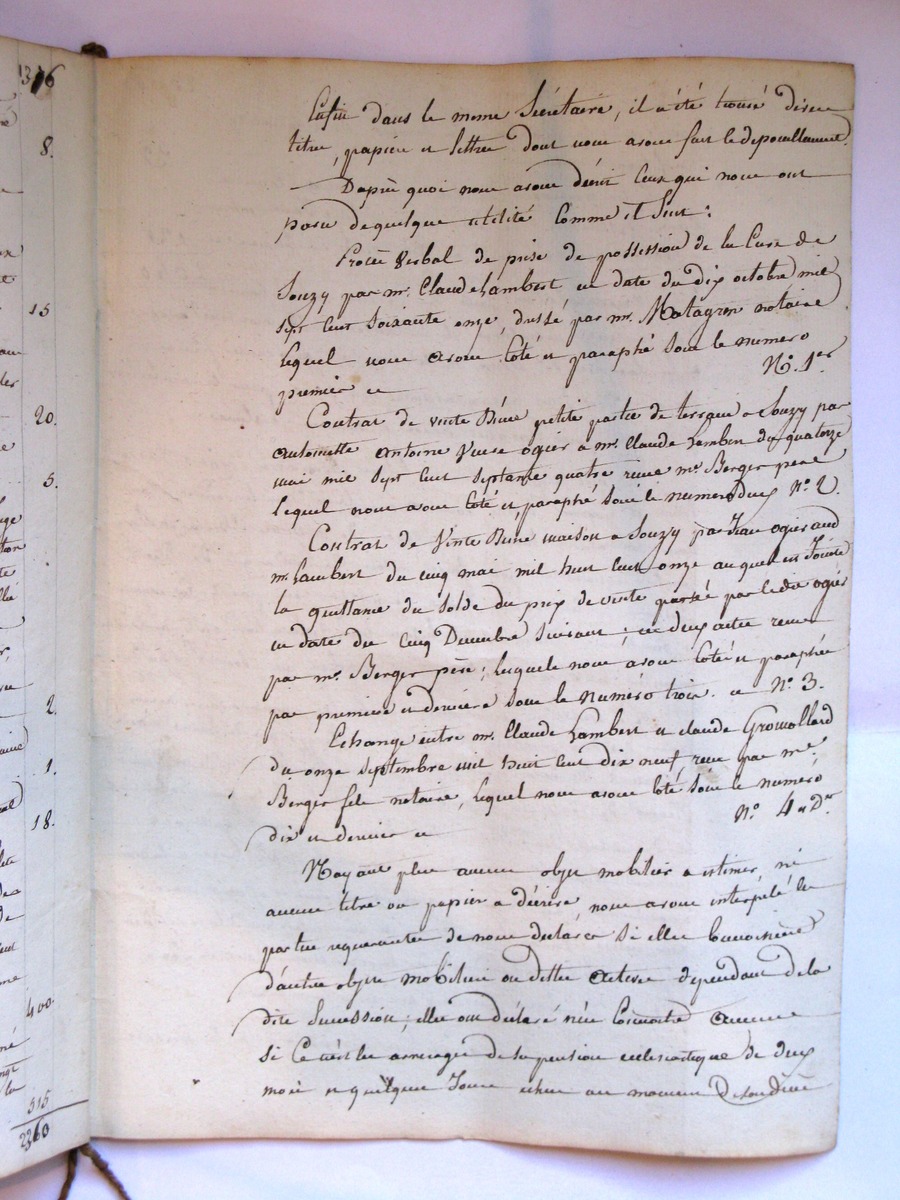 1316
8.
15
20.
5.
2.
1.
18.
400.
515
2263
Enfin dans le meme Sécrétaire, il a été trouvé divers
titres, papiers et lettres dont nous avons fait le depouillement.
Daprès quoi nous avons décrit ceux qui nous ont
paru de quelque utilité Comme il Suit :
Procès Verbal de prise de possession de la Cure de
Souzy par mr. Claude Lambert en date du dix octobre mil
Sept Cent Soixante onze, dréssé par mr. Matagrin notaire
Lequel nous avons Coté et paraphé Sous le numero
premier ci N.o 1er
Contrat de vente D'une petite partie de terrain a Souzy par
antoinette antoine Veuve ogier a mr. Claude Lambert du quatorze
mai mil Sept Cent Septante quatre reçue mr. Berger pere
Lequel nous avons Coté et paraphé Sous le numero Deux N.o 2.
Contrat de Vente D'une maison a Souzy par Jean ogier aud
mr. Lambert du cinq mai mil huit Cent onze auquel est Jointe
la quittance du Solde du prix de vente passée par ledit ogier
en date du Cinq Decembre Suivant ; ces deux actes reçus
par mr. Berger père ; lesquels nous avons Coté et paraphés
par premiere et derniere Sous le Numéro trois. ci N.o 3.
Echange entre mr. Claude Lambert et claude Grouollard
du onze Septembre mil huit Cent dix neuf, reçu par me.
Berger fils notaire, lequel nous avons Coté Sous le numéro
dix et dernier ci N.o 4 et Der
N'ayant plus aucun objet mobilier a estimer, ni
aucun titre ou papier a décrire, nous avons interpélé les
parties requerantes de nous déclarer Si elles Connoissoient
d'autres objets mobiliers ou dettes actives dependant de la
dite Succession ; elles ont déclaré n'en Connoitre aucune
Si Ce n'est les arrerages de Sa pension ecclesiastique de deux
mois et quelques Jours echus au moment De son Décès